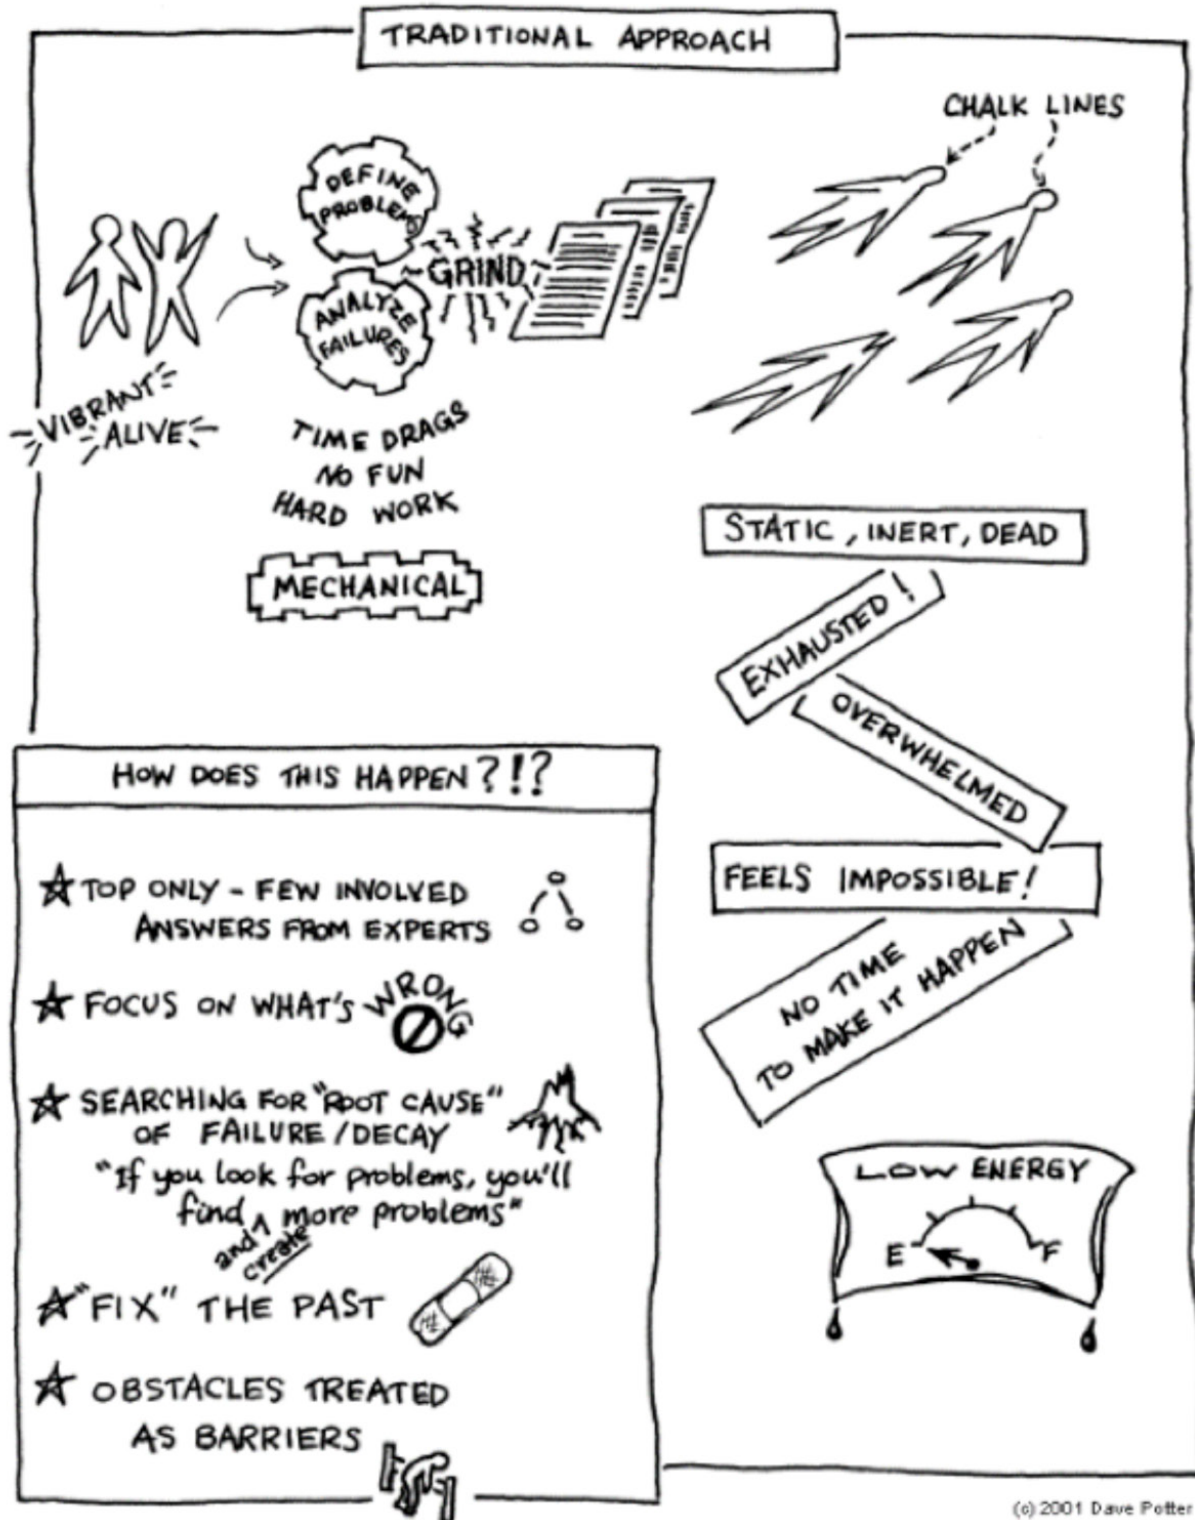 TRADITIONAL APPROACH
CHALK LINES
DEFINE
PROBLEMS
GRIND
ANALYZE
FAILURES
VIBRANT
ALIVE
TIME DRAGS
NO FUN
HARD WORK
MECHANICAL
STATIC, INERT, DEAD
EXHAUSTED!
OVERWHELMED
FEELS IMPOSSIBLE!
NO TIME
TO MAKE IT HAPPEN
LOW ENERGY
E F
HOW DOES THIS HAPPEN?!?
TOP ONLY - FEW INVOLVED
ANSWERS FROM EXPERTS
FOCUS ON WHAT'S WRONG
SEARCHING FOR "ROOT CAUSE"
OF FAILURE/DECAY
"If you look for problems, you'll
find ^ more problems"
and
create
"FIX" THE PAST
OBSTACLES TREATED
AS BARRIERS
(c) 2001 Dave Potter